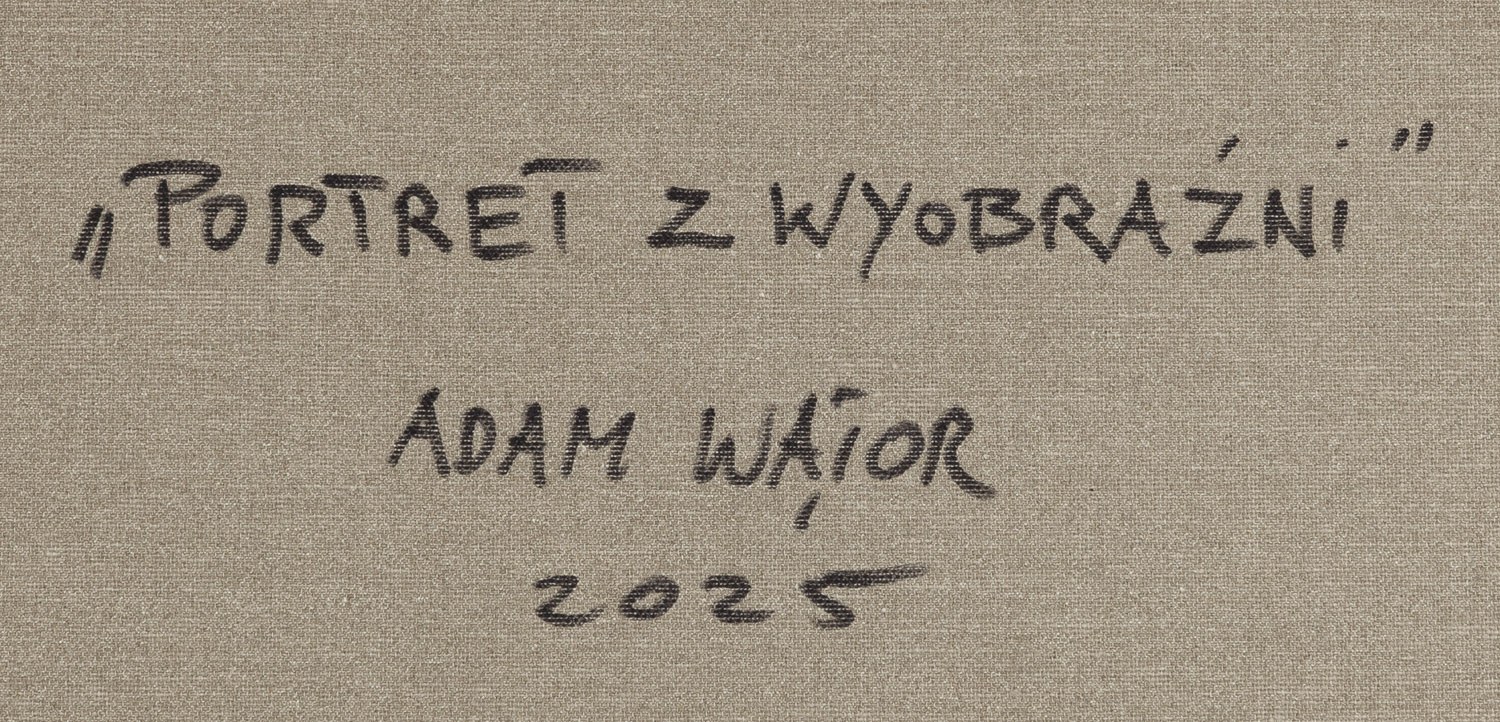 „PORTRET Z WYOBRAŹNi”
ADAM WĄTOR
2025